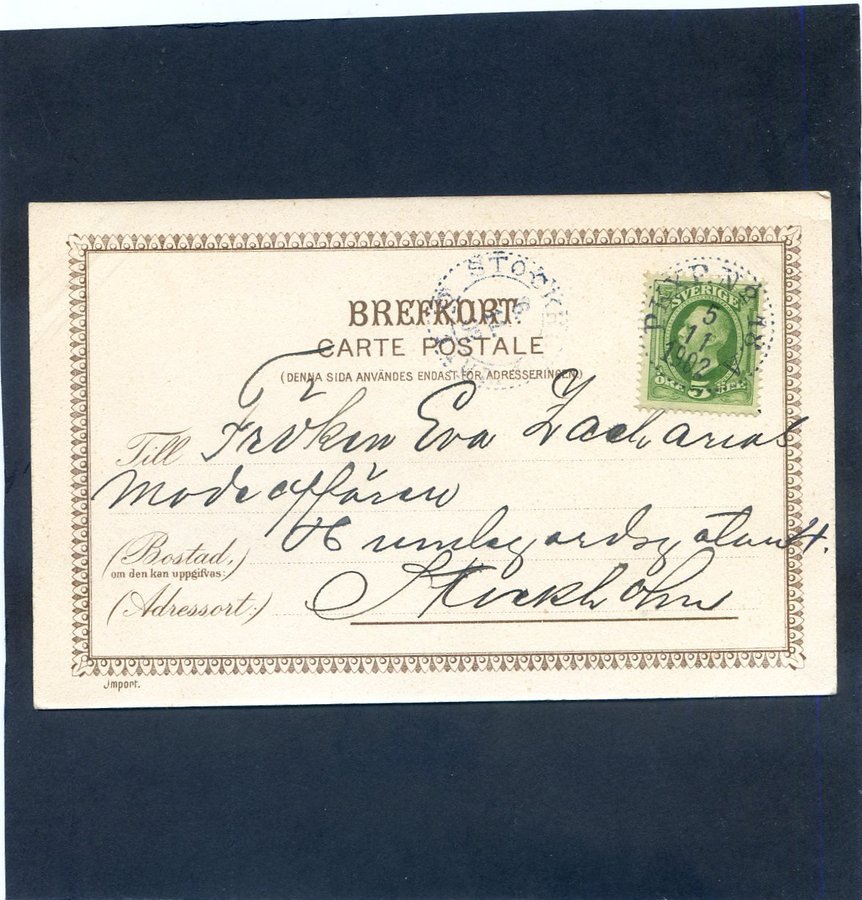 STOCKH
BREFKORT.
CARTE POSTALE
(DENNA SIDA ANVÄNDES ENDAST FÖR ADRESSERINGEN)
SVERIGE
5
ÖRE 5 ÖRE
PKXP Nº 18 A
5
11
1902
Till Fröken Eva Zacharias
Modeaffären
(Bostad, Humlegårdsgatan
om den kan uppgifvas:)
(Adressort:) Stockholm
Import.